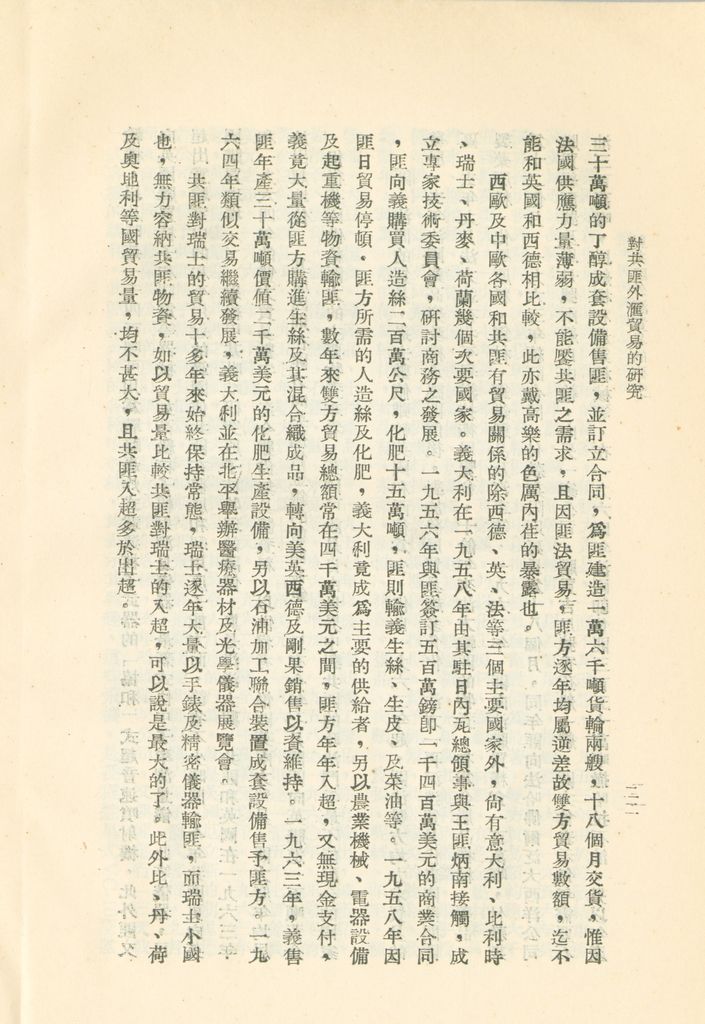 對共匪外滙貿易的研究
二二
三十萬噸的丁醇成套設備售匪，並訂立合同，爲匪建造一萬六千噸貨輪兩艘，十八個月交貨，惟因
法國供應力量薄弱，不能饜共匪之需求，且因匪法貿易，匪方逐年均屬逆差故雙方貿易數額，迄不
能和英國和西德相比較，此亦戴高樂的色厲內荏的暴露也。
西歐及中歐各國和共匪有貿易關係的除西德、英、法等三個主要國家外，尙有意大利、比利時
、瑞士、丹麥、荷蘭幾個次要國家。義大利在一九五八年由其駐日內瓦總領事與王匪炳南接觸，成
立專家技術委員會，硏討商務之發展。一九五六年與匪簽訂五百萬鎊卽一千四百萬美元的商業合同
，匪向義購買人造絲二百萬公尺，化肥十五萬噸，匪則輸義生絲、生皮、及菜油等。一九五八年因
匪日貿易停頓。匪方所需的人造絲及化肥，義大利竟成爲主要的供給者，另以農業機械、電器設備
及起重機等物資輸匪，數年來雙方貿易總額常在四千萬美元之間，匪方年年入超，又無現金支付，
義竟大量從匪方購進生絲及其混合織成品，轉向美英西德及剛果銷售以資維持。一九六三年，義售
匪年產三十萬噸價值二千萬美元的化肥生產設備，另以石油加工聯合裝置成套設備售予匪方。一九
六四年類似交易繼續發展，義大利並在北平舉辦醫療器材及光學儀器展覽會。
共匪對瑞士的貿易十多年來始終保持常態，瑞士逐年大量以手錶及精密儀器輸匪，而瑞士小國
也，無力容納共匪物資，如以貿易量比較共匪對瑞士的入超，可以說是最大的了。此外比、丹、荷
及奧地利等國貿易量，均不甚大，且共匪入超多於出超。